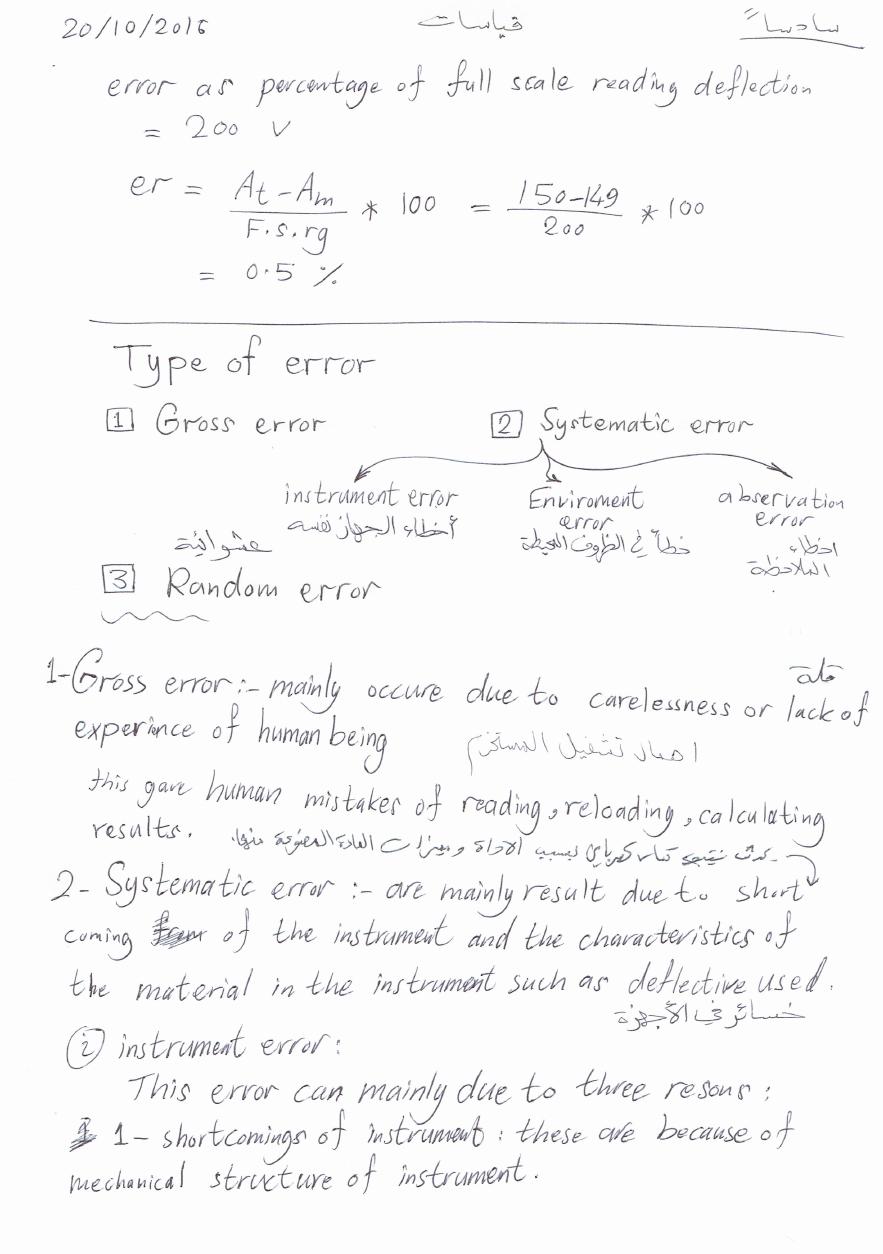 20/10/2016 قياسات سادساً
error as percentage of full scale reading deflection
= 200 V
er = At - Am / F.s.rg * 100 = 150-149 / 200 * 100
= 0.5 %
Type of error
1 Gross error 2 Systematic error
instrument error Enviroment error abservation error
أخطاء الجهاز نفسه خطأ في الظروف المحيطة اخطاء الملاحظة
عشوائية
3 Random error
قلة
1-Gross error :- mainly occure due to carelessness or lack of
experince of human being
this gave human mistakes of reading, reloading, calculating
results.
بسبب الاداة المادة المصنوعة منها
2- Systematic error :- are mainly result due to short
coming of the instrument and the characteristics of
the material in the instrument such as deflective used.
خسائر في الأجهزة
i instrument error:
This error can mainly due to three resons :
1- shortcomings of instrument : these are because of
mechanical structure of instrument.